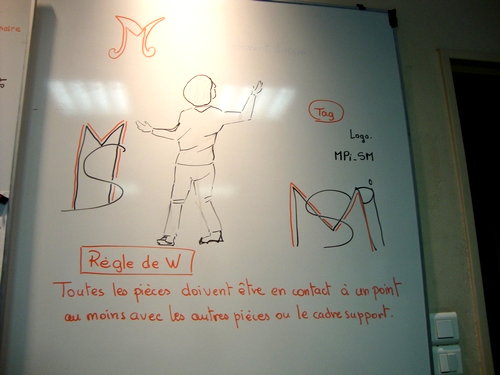 M
Tag
Logo.
MPi_SM
Règle de W
Toutes les pièces doivent être en contact à un point
au moins avec les autres pièces ou le cadre support.